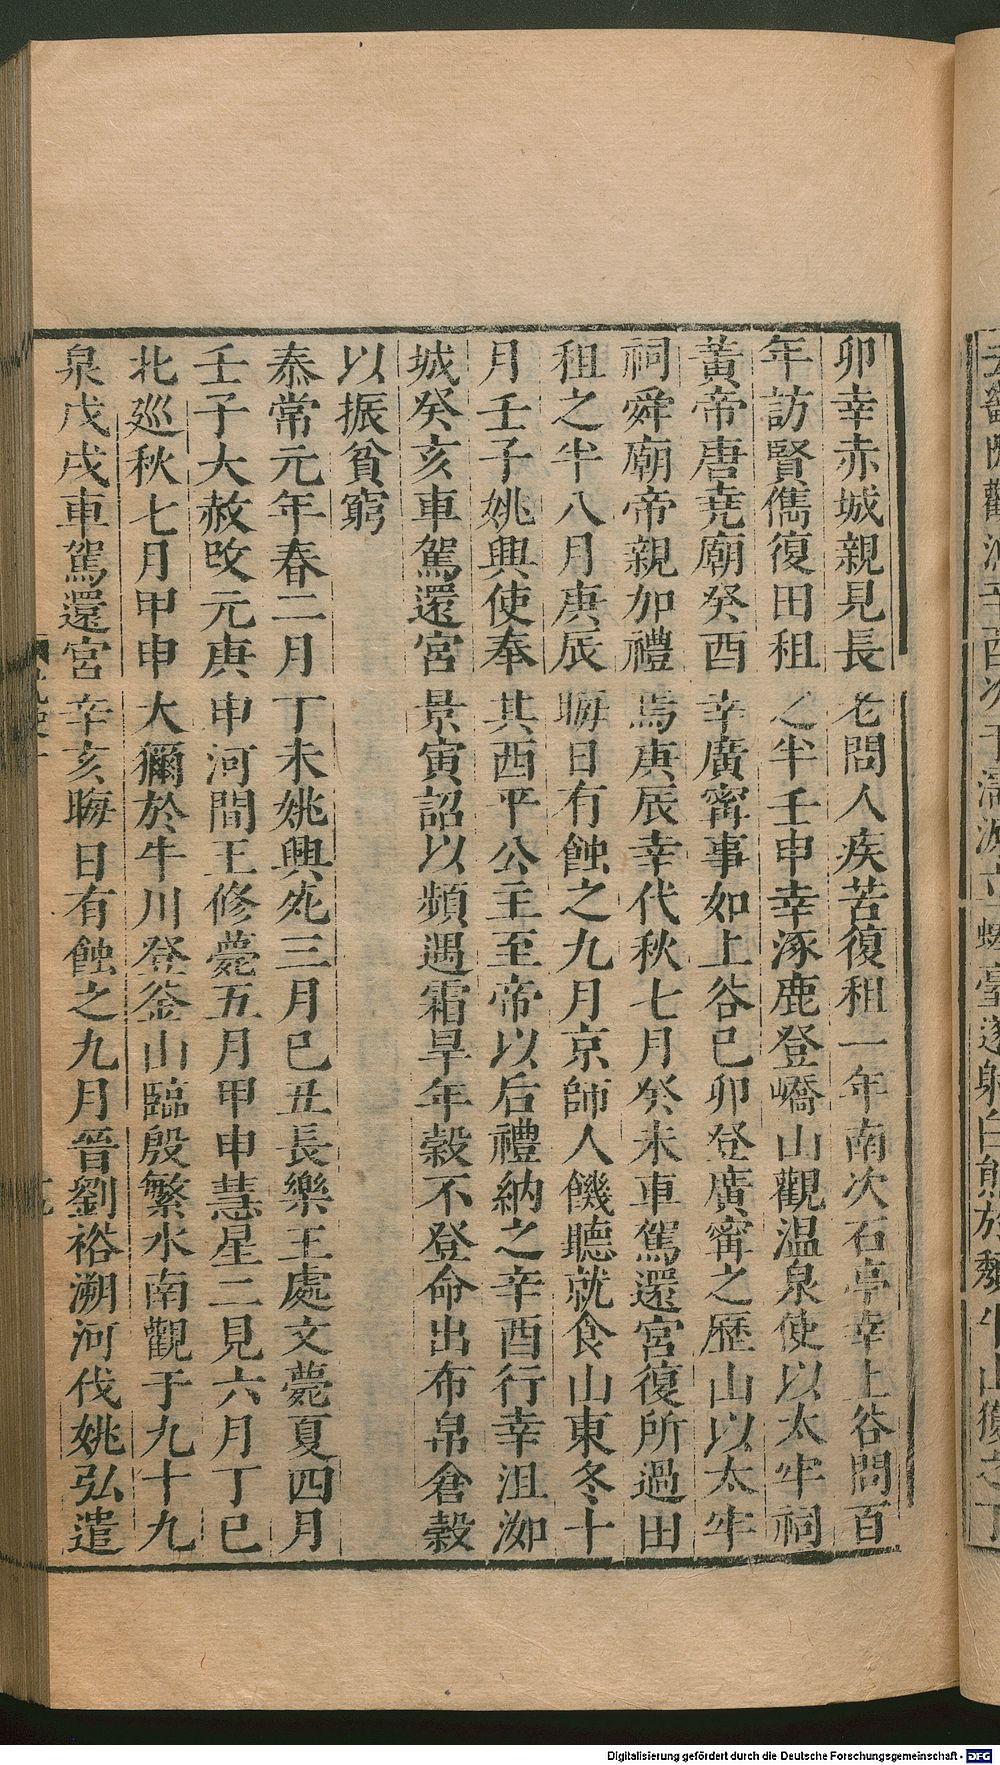 卯幸赤城親見長老問人疾苦復租一年南次石亭幸上谷問百
年訪賢儁復田租之半壬申幸涿鹿登嶠山觀温泉使以太牢祠
黃帝唐堯廟癸酉幸廣甯事如上谷已卯登廣甯之歷山以太牢
祠舜廟帝親加禮焉庚辰幸代秋七月癸未車駕還宮復所過田
租之半八月庚辰晦日有蝕之九月京師人饑聽就食山東冬十
月壬子姚興使奉其西平公主至帝以后禮納之辛酉行幸沮洳
城癸亥車駕還宮景寅詔以頻遇霜旱年穀不登命出布帛倉穀
以振貧窮
泰常元年春二月丁未姚興死三月已丑長樂王處文薨夏四月
壬子大赦改元庚申河間王修薨五月甲申慧星二見六月丁巳
北巡秋七月甲申大獮於牛川登釜山臨殷繁水南觀于九十九
泉戊戌車駕還宮辛亥晦日有蝕之九月晉劉裕溯河伐姚弘遣
Digitalisierung gefördert durch die Deutsche Forschungsgemeinschaft - DFG